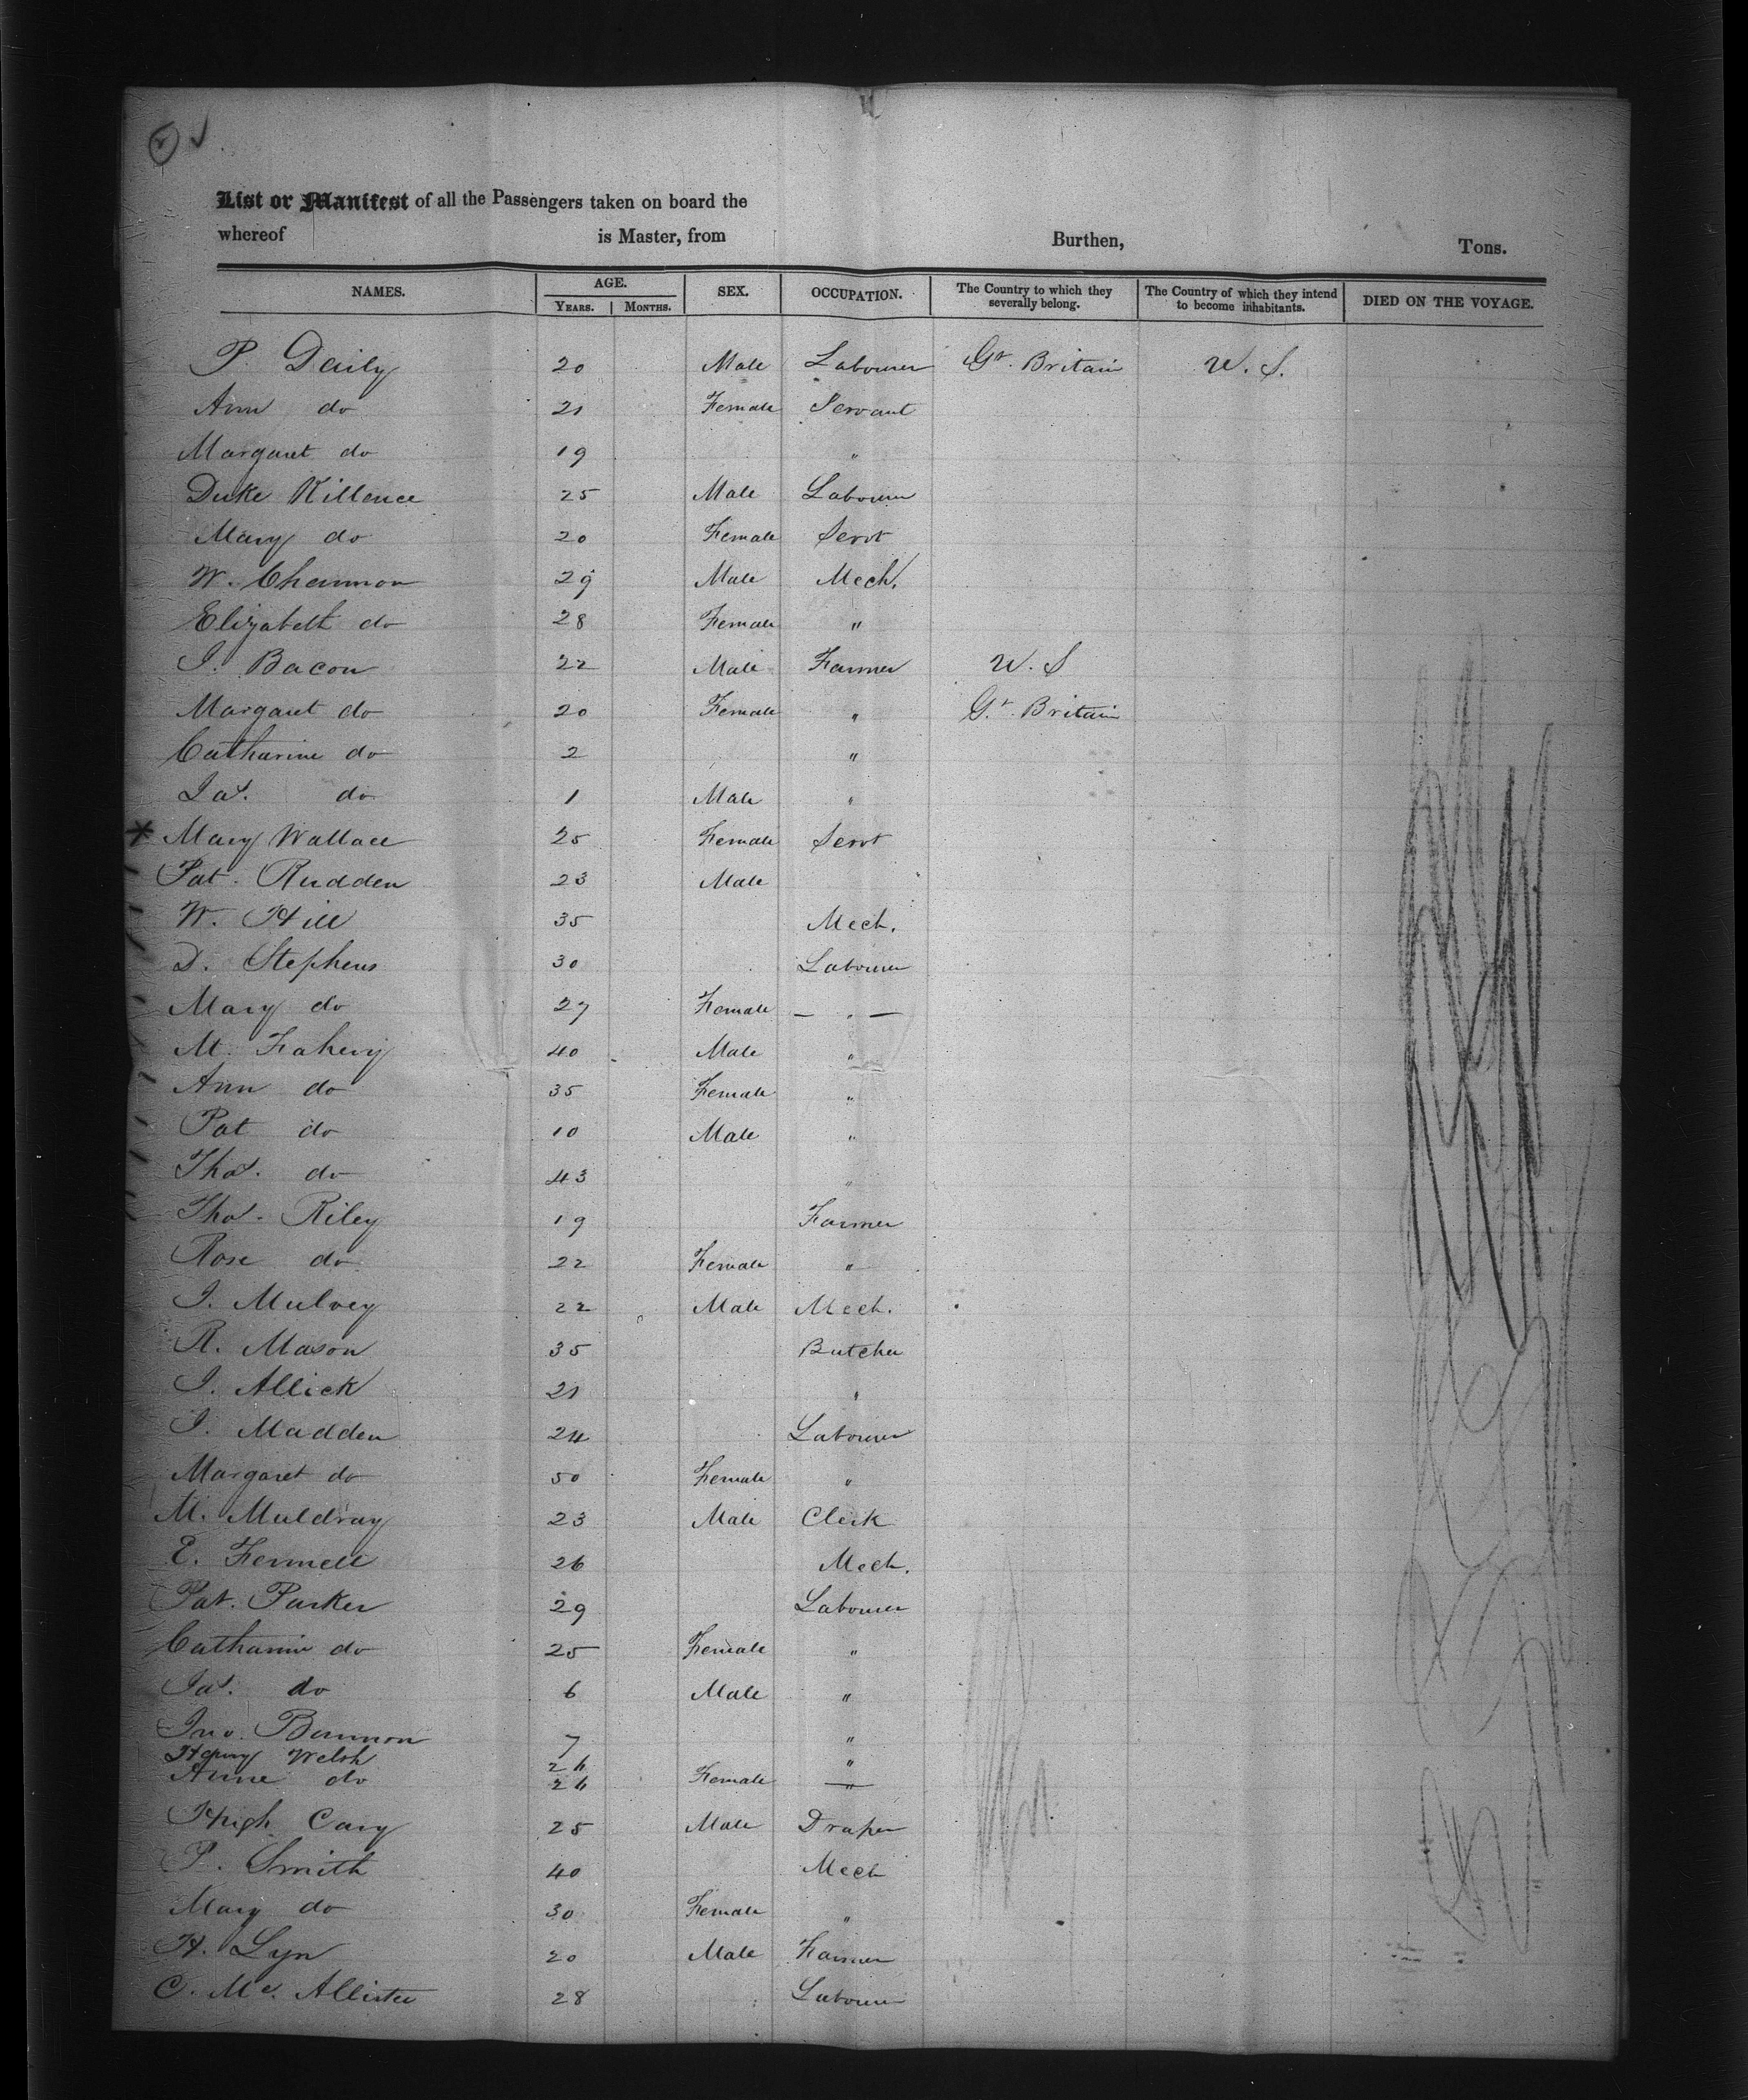 List or Manifest of all the Passengers taken on board the
whereof is Master, from Burthen, Tons.
NAMES. AGE. YEARS. MONTHS. SEX. OCCUPATION. The Country to which they severally belong. The Country of which they intend to become inhabitants. DIED ON THE VOYAGE.
P. Daily 20 Male Labourer Gt. Britain U. S.
Ann do 21 Female Servant
Margaret do 19 "
Duke Killence 25 Male Labourer
Mary do 20 Female Servt
W. Channon 29 Male Mech.
Elizabeth do 28 Female "
J. Bacon 22 Male Farmer U. S
Margaret do 20 Female " Gt. Britain
Catharine do 2 "
Jas. do 1 Male "
Mary Wallace 25 Female Servt
Pat. Rudden 23 Male
W. Hill 35 Mech.
D. Stephens 30 Labourer
Mary do 27 Female — " —
M. Fahery 40 Male "
Ann do 35 Female "
Pat do 10 Male "
Thos. do 43 "
Thos. Riley 19 Farmer
Rose do 22 Female "
J. Mulvey 22 Male Mech.
R. Mason 35 Butcher
J. Allick 21 "
J. Madden 24 Labourer
Margaret do 50 Female "
M. Muldray 23 Male Clerk
E. Fennell 26 Mech.
Pat. Parker 29 Labourer
Catharine do 25 Female "
Jas. do 6 Male "
Jno. Bannon 7 "
Henry Welsh 24 "
Anne do 24 Female "
Hugh Cary 25 Male Draper
P. Smith 40 Mech
Mary do 30 Female "
H. Lyn 20 Male Farmer
C. Mc. Allister 28 Labourer